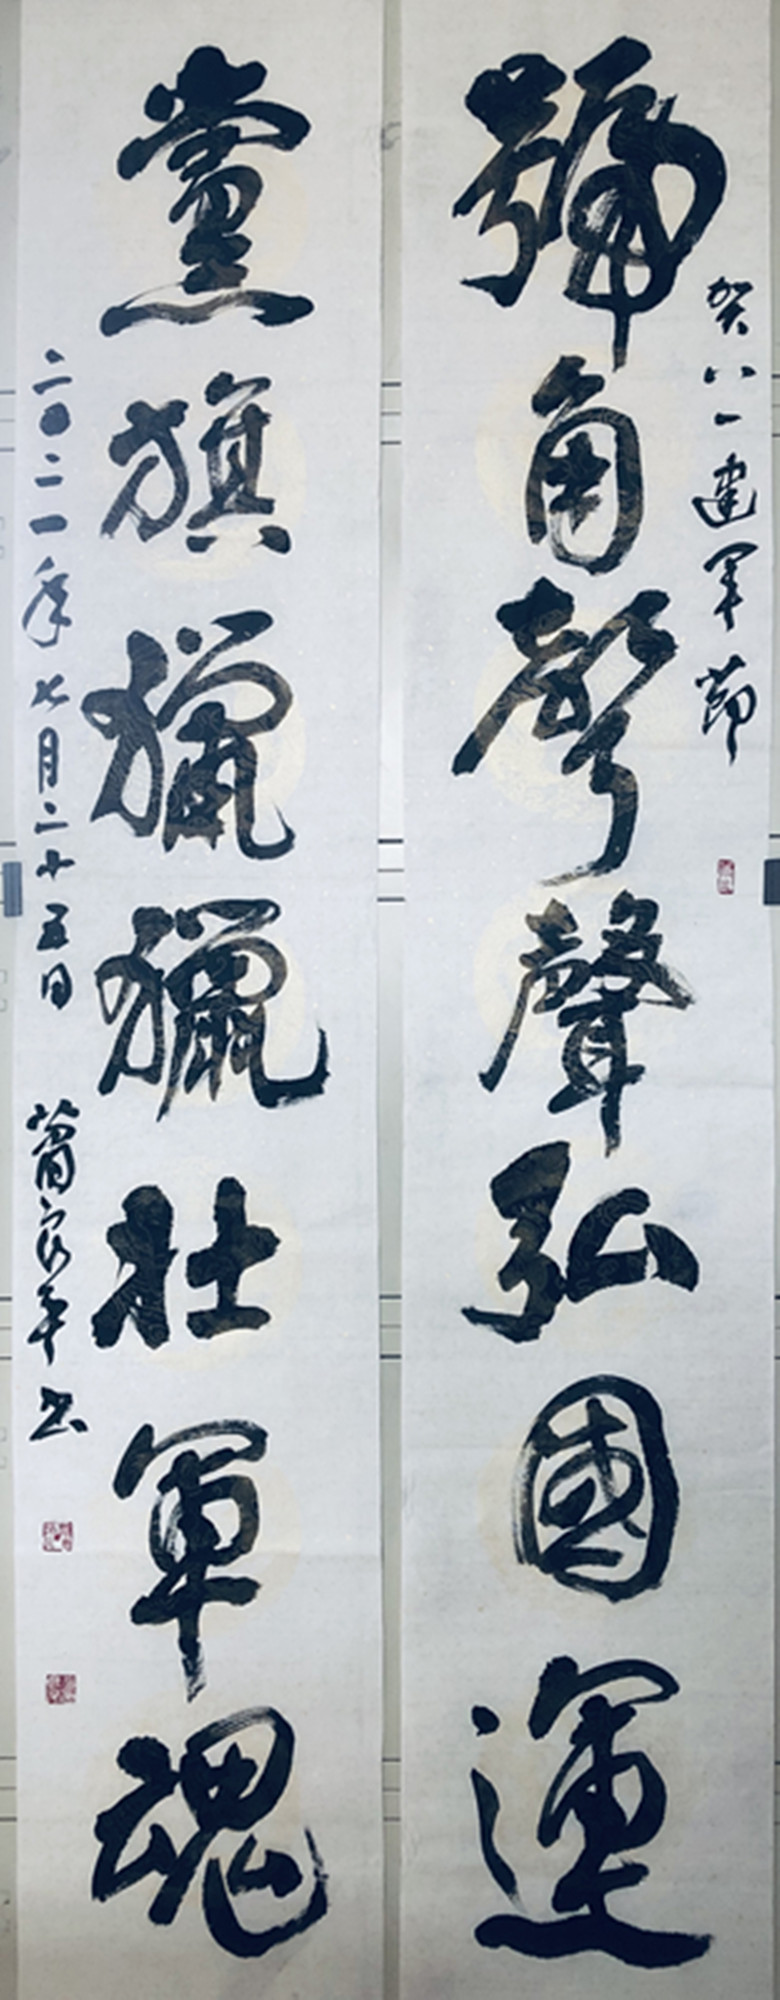 贺八一建军节
號角聲聲弘國運
黨旗獵獵壯軍魂
二〇二一年七月二十五日 平书